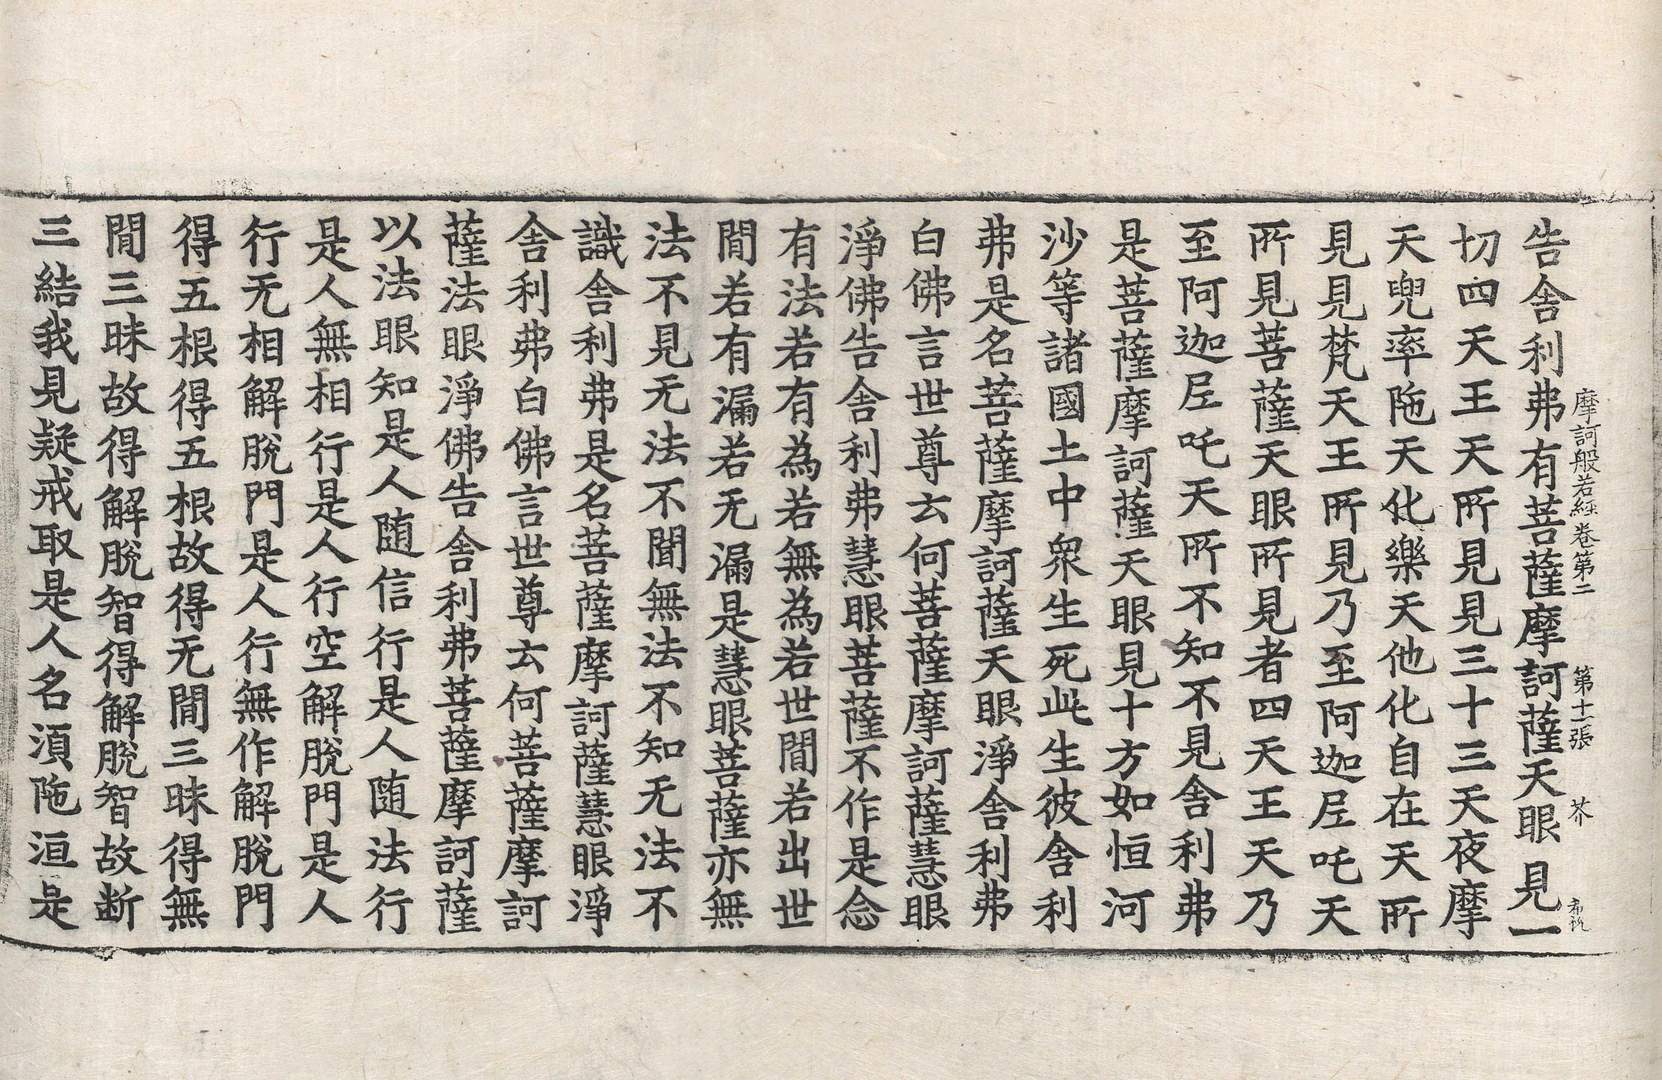 摩訶般若經卷第二 第十一張 芥
告舍利弗有菩薩摩訶薩天眼見一
切四天王天所見見三十三天夜摩
天兜率陁天化樂天他化自在天所
見見梵天王所見乃至阿迦𡰱吒天
所見菩薩天眼所見者四天王天乃
至阿迦𡰱吒天所不知不見舍利弗
是菩薩摩訶薩天眼見十方如恒河
沙等諸國土中衆生死此生彼舍利
弗是名菩薩摩訶薩天眼淨舍利弗
白佛言世尊云何菩薩摩訶薩慧眼
淨佛告舍利弗慧眼菩薩不作是念
有法若有為若無為若世間若出世
間若有漏若无漏是慧眼菩薩亦無
法不見无法不聞無法不知无法不
識舍利弗是名菩薩摩訶薩慧眼淨
舍利弗白佛言世尊云何菩薩摩訶
薩法眼淨佛告舍利弗菩薩摩訶薩
以法眼知是人随信行是人随法行
是人無相行是人行空解脫門是人
行无相解脫門是人行無作解脫門
得五根得五根故得无間三昧得無
間三昧故得解脫智得解脫智故断
三結我見疑戒取是人名湏陁洹是